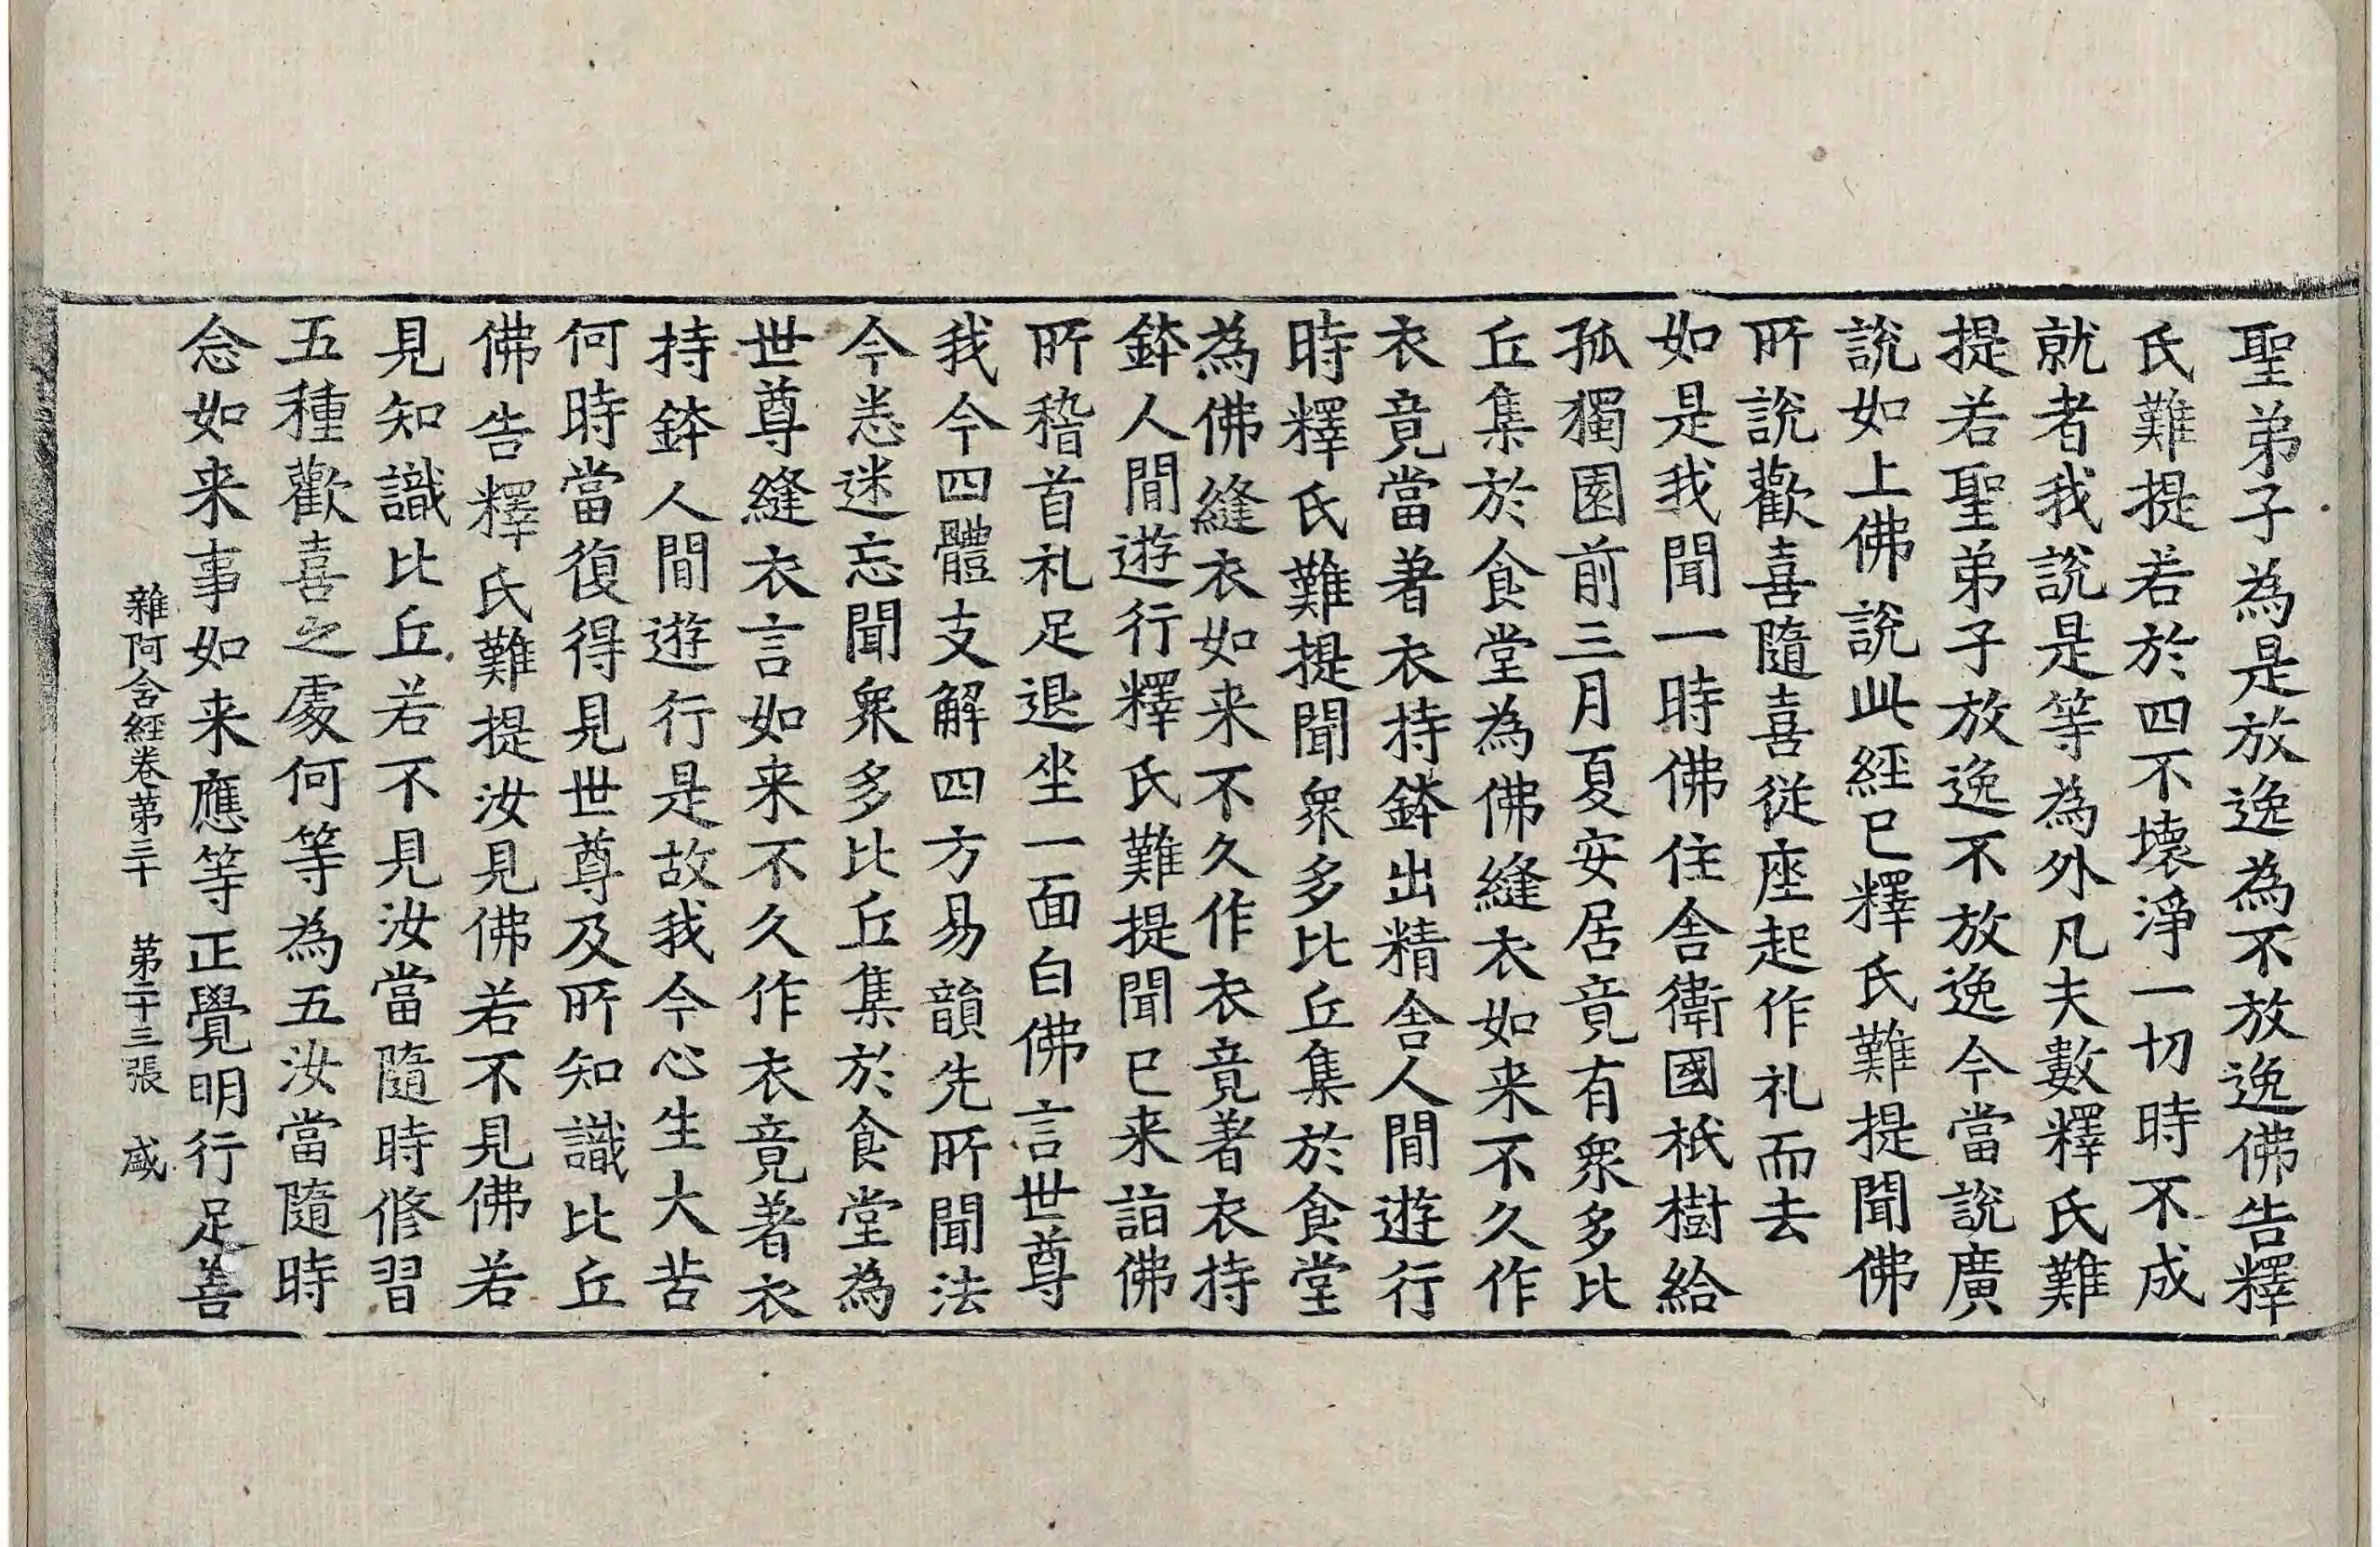 聖弟子為是放逸為不放逸佛告釋
氏難提若於四不壞淨一切時不成
就者我說是等為外凡夫數釋氏難
提若聖弟子放逸不放逸今當說廣
說如上佛說此經已釋氏難提聞佛
所說歡喜隨喜從座起作礼而去
如是我聞一時佛住舍衛國祇樹給
孤獨園前三月夏安居竟有衆多比
丘集於食堂為佛縫衣如来不久作
衣竟當著衣持鉢出精舍人間遊行
時釋氏難提聞衆多比丘集於食堂
為佛縫衣如来不久作衣竟著衣持
鉢人間遊行釋氏難提聞已来詣佛
所稽首礼足退坐一面白佛言世尊
我今四體支解四方易韻先所聞法
今悉迷忘聞衆多比丘集於食堂為
世尊縫衣言如来不久作衣竟著衣
持鉢人間遊行是故我今心生大苦
何時當復得見世尊及所知識比丘
佛告釋氏難提汝見佛若不見佛若
見知識比丘若不見汝當隨時修習
五種歡喜之處何等為五汝當隨時
念如来事如来應等正覺明行足善
雜阿含經卷苐三十 苐二十三張 盛